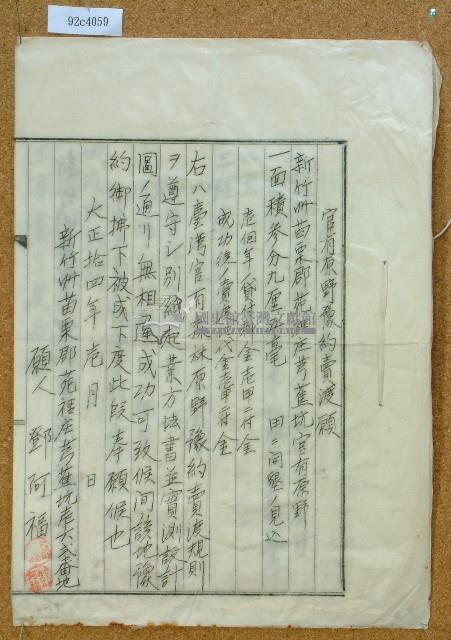 92c4059
官有原野豫約賣渡願
新竹州苗栗郡苑裡庄芎蕉坑官有原野
一面積参分九厘五毫 田ニ開墾ノ見込
壱個年ノ貸付料金壱甲ニ付金
成功後ノ賣渡代金壱甲ニ付金
右ハ臺湾官有森林原野豫約賣渡規則
ヲ遵守シ別紙起業方法書並實測設計
圖ノ通リ無相違成功可致候間該地豫
約御拂下被成下度此段奉願候也
大正拾四年壱月 日
新竹州苗栗郡苑裡庄芎蕉坑壱六弍番地
願人 鄧阿福
國史館臺灣文獻館